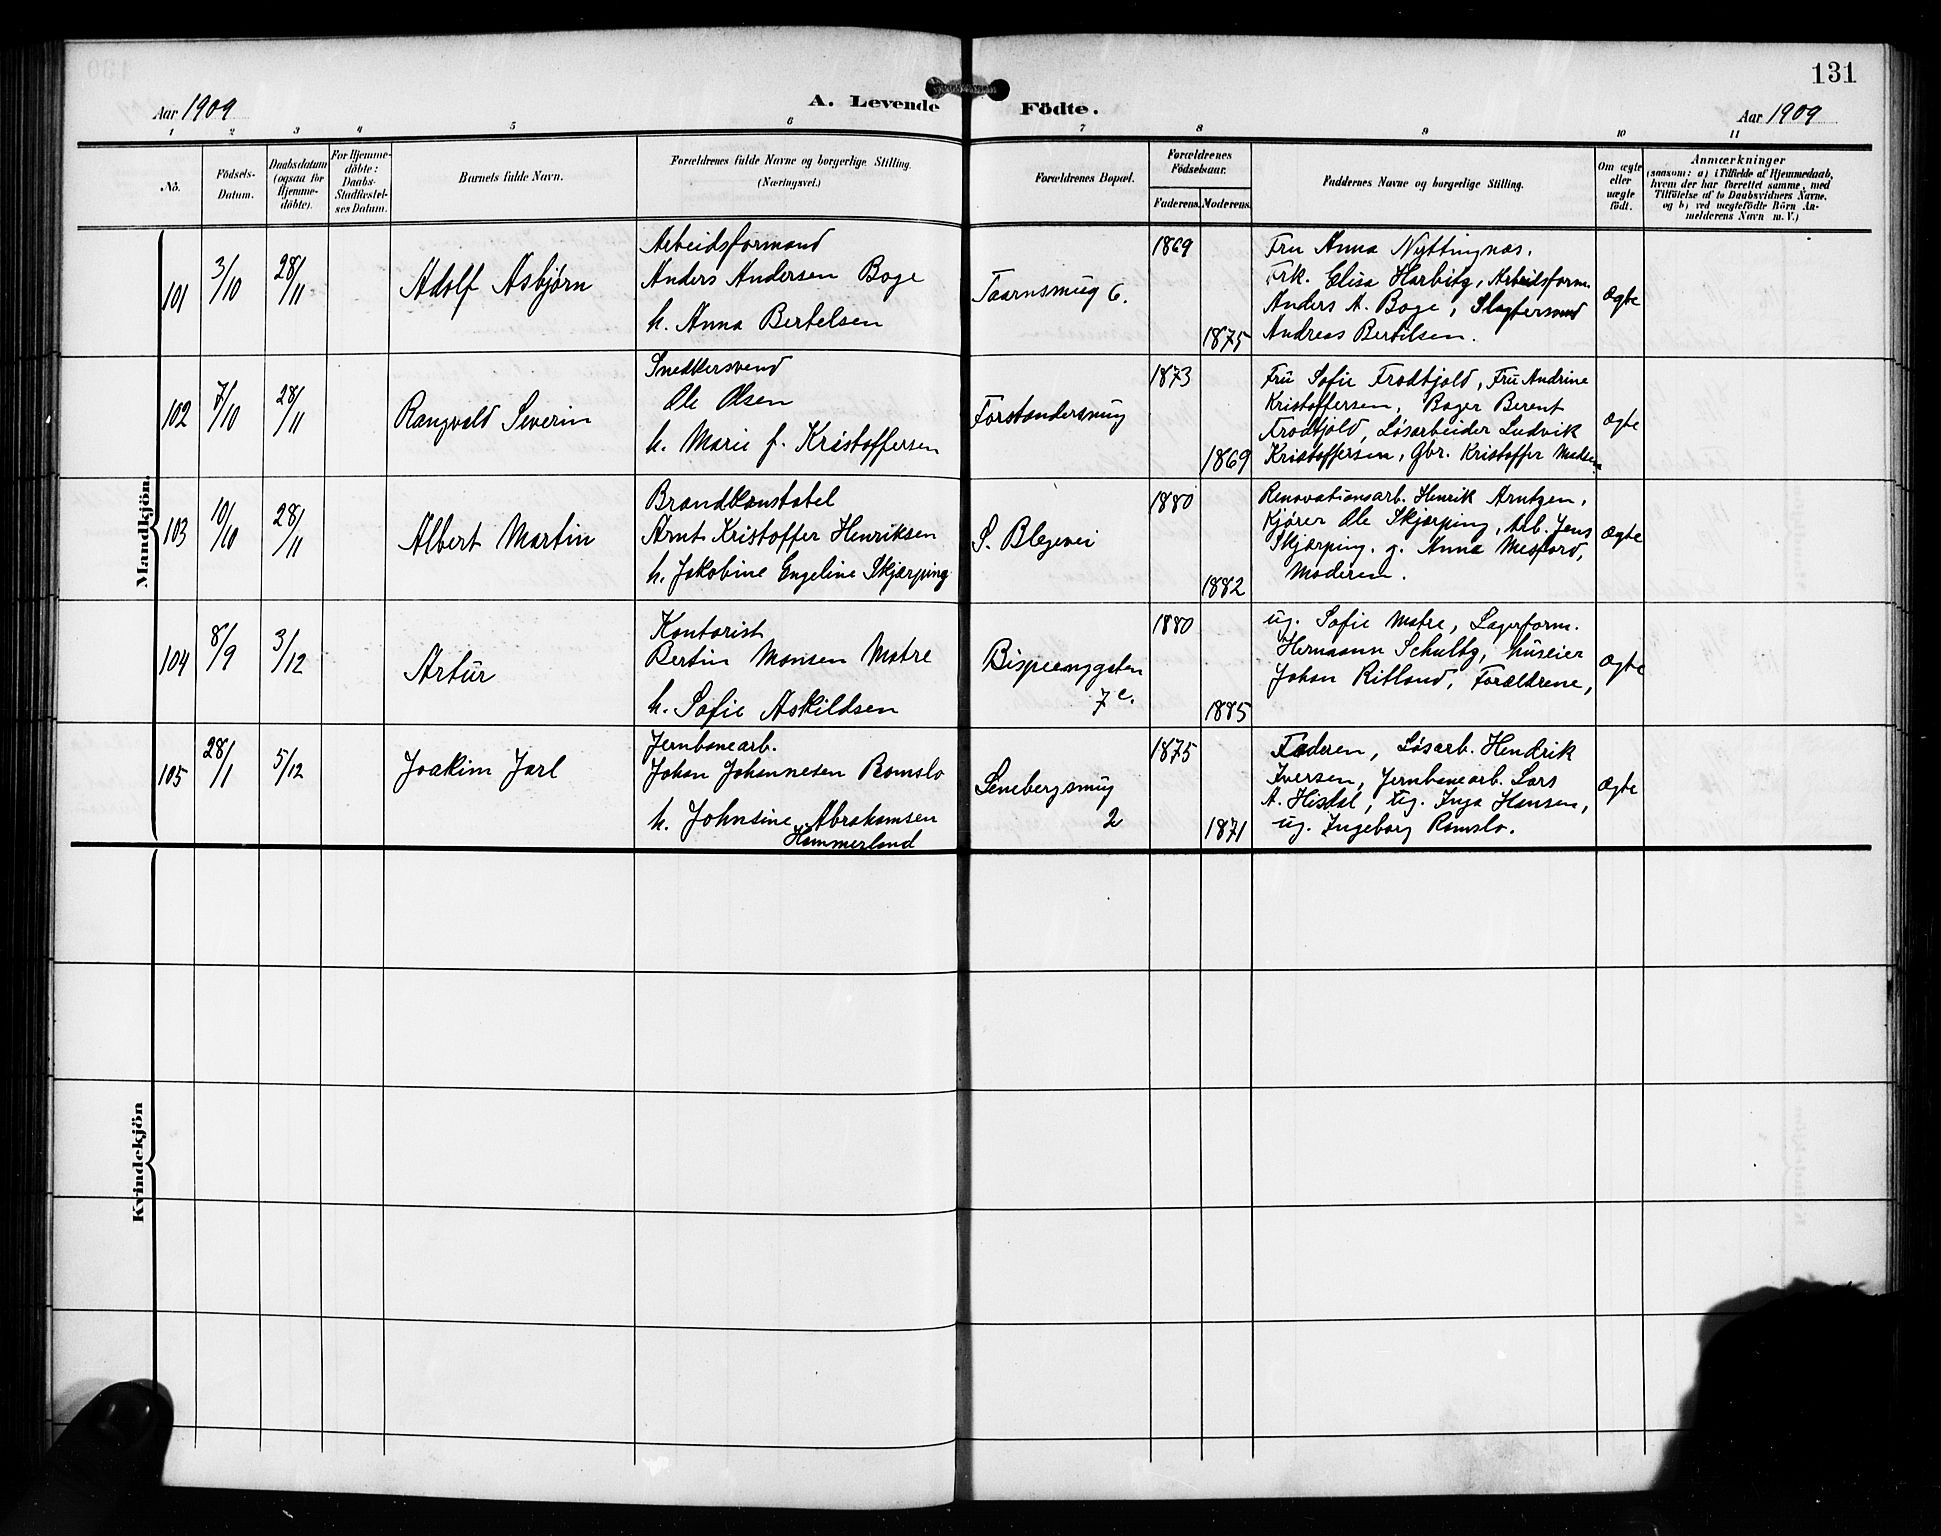 131
Aar 1909
A. Levende Födte.
Aar 1909
1 2 3 4 5 6 7 8 9 10 11
No.
Födsels-
Datum.
Daabsdatum
(ogsaa for
Hjemme-
döbte).
For Hjemme-
döbte:
Daabs-
Stadfæstel-
ses Datum.
Barnets fulde Navn.
Forældrenes fulde Navne og borgerlige Stilling.
(Næringsvei.)
Forældrenes Bopæl.
Forældrenes
Födselsaar.
Faderens. Moderens.
Faddernes Navne og borgerlige Stilling.
Om ægte
eller
uægte
födt.
Anmærkninger
(saasom: a) i Tilfælde af Hjemmedaab,
hvem der har forrettet samme, med
Tilföielse af to Daabsvidners Navne.
og b) ved uægtefödte Börn An-
melderens Navn m. V.)
Mandkjön
101
3/10
28/11
Adolf Asbjørn
Arbeidsformand
Anders Andersen Boge
h. Anna Bertelsen
Taarnsmug 6.
1869
1875
Fru Anna Nyttingnæs,
Frk. Elisa Harbitz, Arbeidsform.
Anders A. Boge, Slagtersvend
Andreas Bertilsen.
Ægte
102
7/10
28/11
Rangvald Severin
Snedkersvend
Ole Olsen
h. Marie f. Kristoffersen
Forstandersmug
1873
1869
Fru Sofie Frodtjold, Fru Andrine
Kristoffersen, Bager Berent
Frodtjold, Løsarbeider Ludvik
Kristoffersen, Gbr. Kristoffer Madsen
Ægte
103
10/10
28/11
Albert Martin
Brandkonstabel
Arnt Kristoffer Henriksen
h. Jakobine Engeline Skjærping
S. Blegevei
1880
1882
Renovationsarb. Henrik Arntzen,
Kjører Ole Skjærping, Arb. Jens
Skjærping. g. Anna Mesford,
Moderen.
Ægte
104
8/9
3/12
Artur
Kontorist
Bertin Monsen Matre
h. Sofie Askildsen
Bispeenggaten
7c.
1880
1885
ug. Sofie Matre, Lagerform.
Hermann Schultz, Huseier
Johan Ritland, Forældrene,
Ægte
105
28/1
5/12
Joakim Jarl
Jernbanearb.
Johan Johannesen Romslo
h. Johnsine Abrahamsen
Hammerland
Lenebergsmug
2
1875
1871
Faderen, Løsarb. Hendrik
Iversen, Jernbanearb. Lars
A. Hisdal, ug. Inga Hansen,
ug. Ingeborg Romslo.
Ægte
Kvindekjön